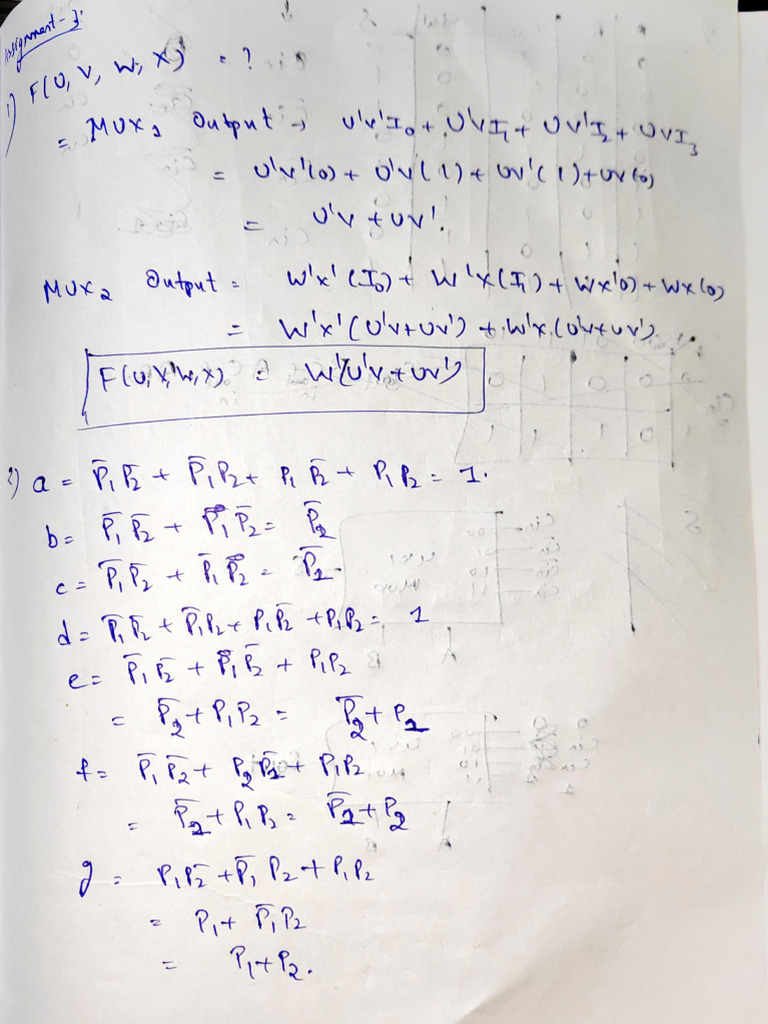 Assignment-3:
1) F(U, V, W, X) = ?
= MUX1 Output → U'V'I0 + U'VI1 + UV'I2 + UVI3
= U'V'(0) + U'V(1) + UV'(1) + UV(0)
= U'V + UV'.
MUX2 Output = W'X'(I0) + W'X(I1) + WX'(0) + WX(0)
= W'X'(U'V+UV') + W'X(U'V+UV')
F(U,V,W,X) = W'(U'V+UV')
2) a = P̅1P̅2 + P̅1P2 + P1P̅2 + P1P2 = 1.
b = P̅1P̅2 + P1P̅2 = P̅2
c = P̅1P̅2 + P1P̅2 = P̅2.
d = P̅1P̅2 + P̅1P2 + P1P̅2 + P1P2 = 1
e = P̅1P̅2 + P1P̅2 + P1P2
= P̅2 + P1P2 = P̅2 + P2
f = P̅1P̅2 + P̅2 + P1P2
= P̅2 + P1P2 = P̅2 + P2
g = P1P̅2 + P̅1P2 + P1P2
= P1 + P̅1P2
= P1 + P2.